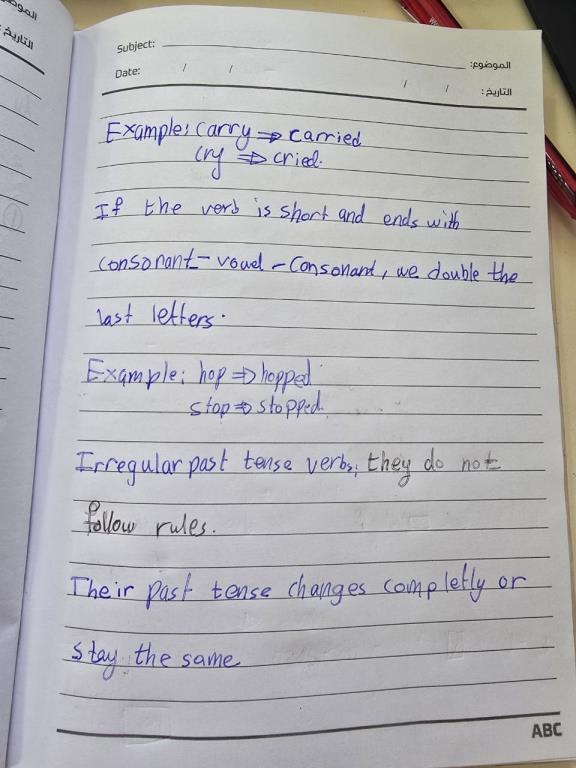 الموض
التاريخ :
Subject:
الموضوع:
Date: / /
/ / التاريخ :
Example: carry ⇒ carried
cry ⇒ cried.
If the verb is short and ends with
consonant - vowel - Consonant, we double the
last letters.
Example: hop ⇒ hopped
stop ⇒ stopped.
Irregular past tense verbs: they do not
follow rules.
Their past tense changes completly or
stay the same
ABC